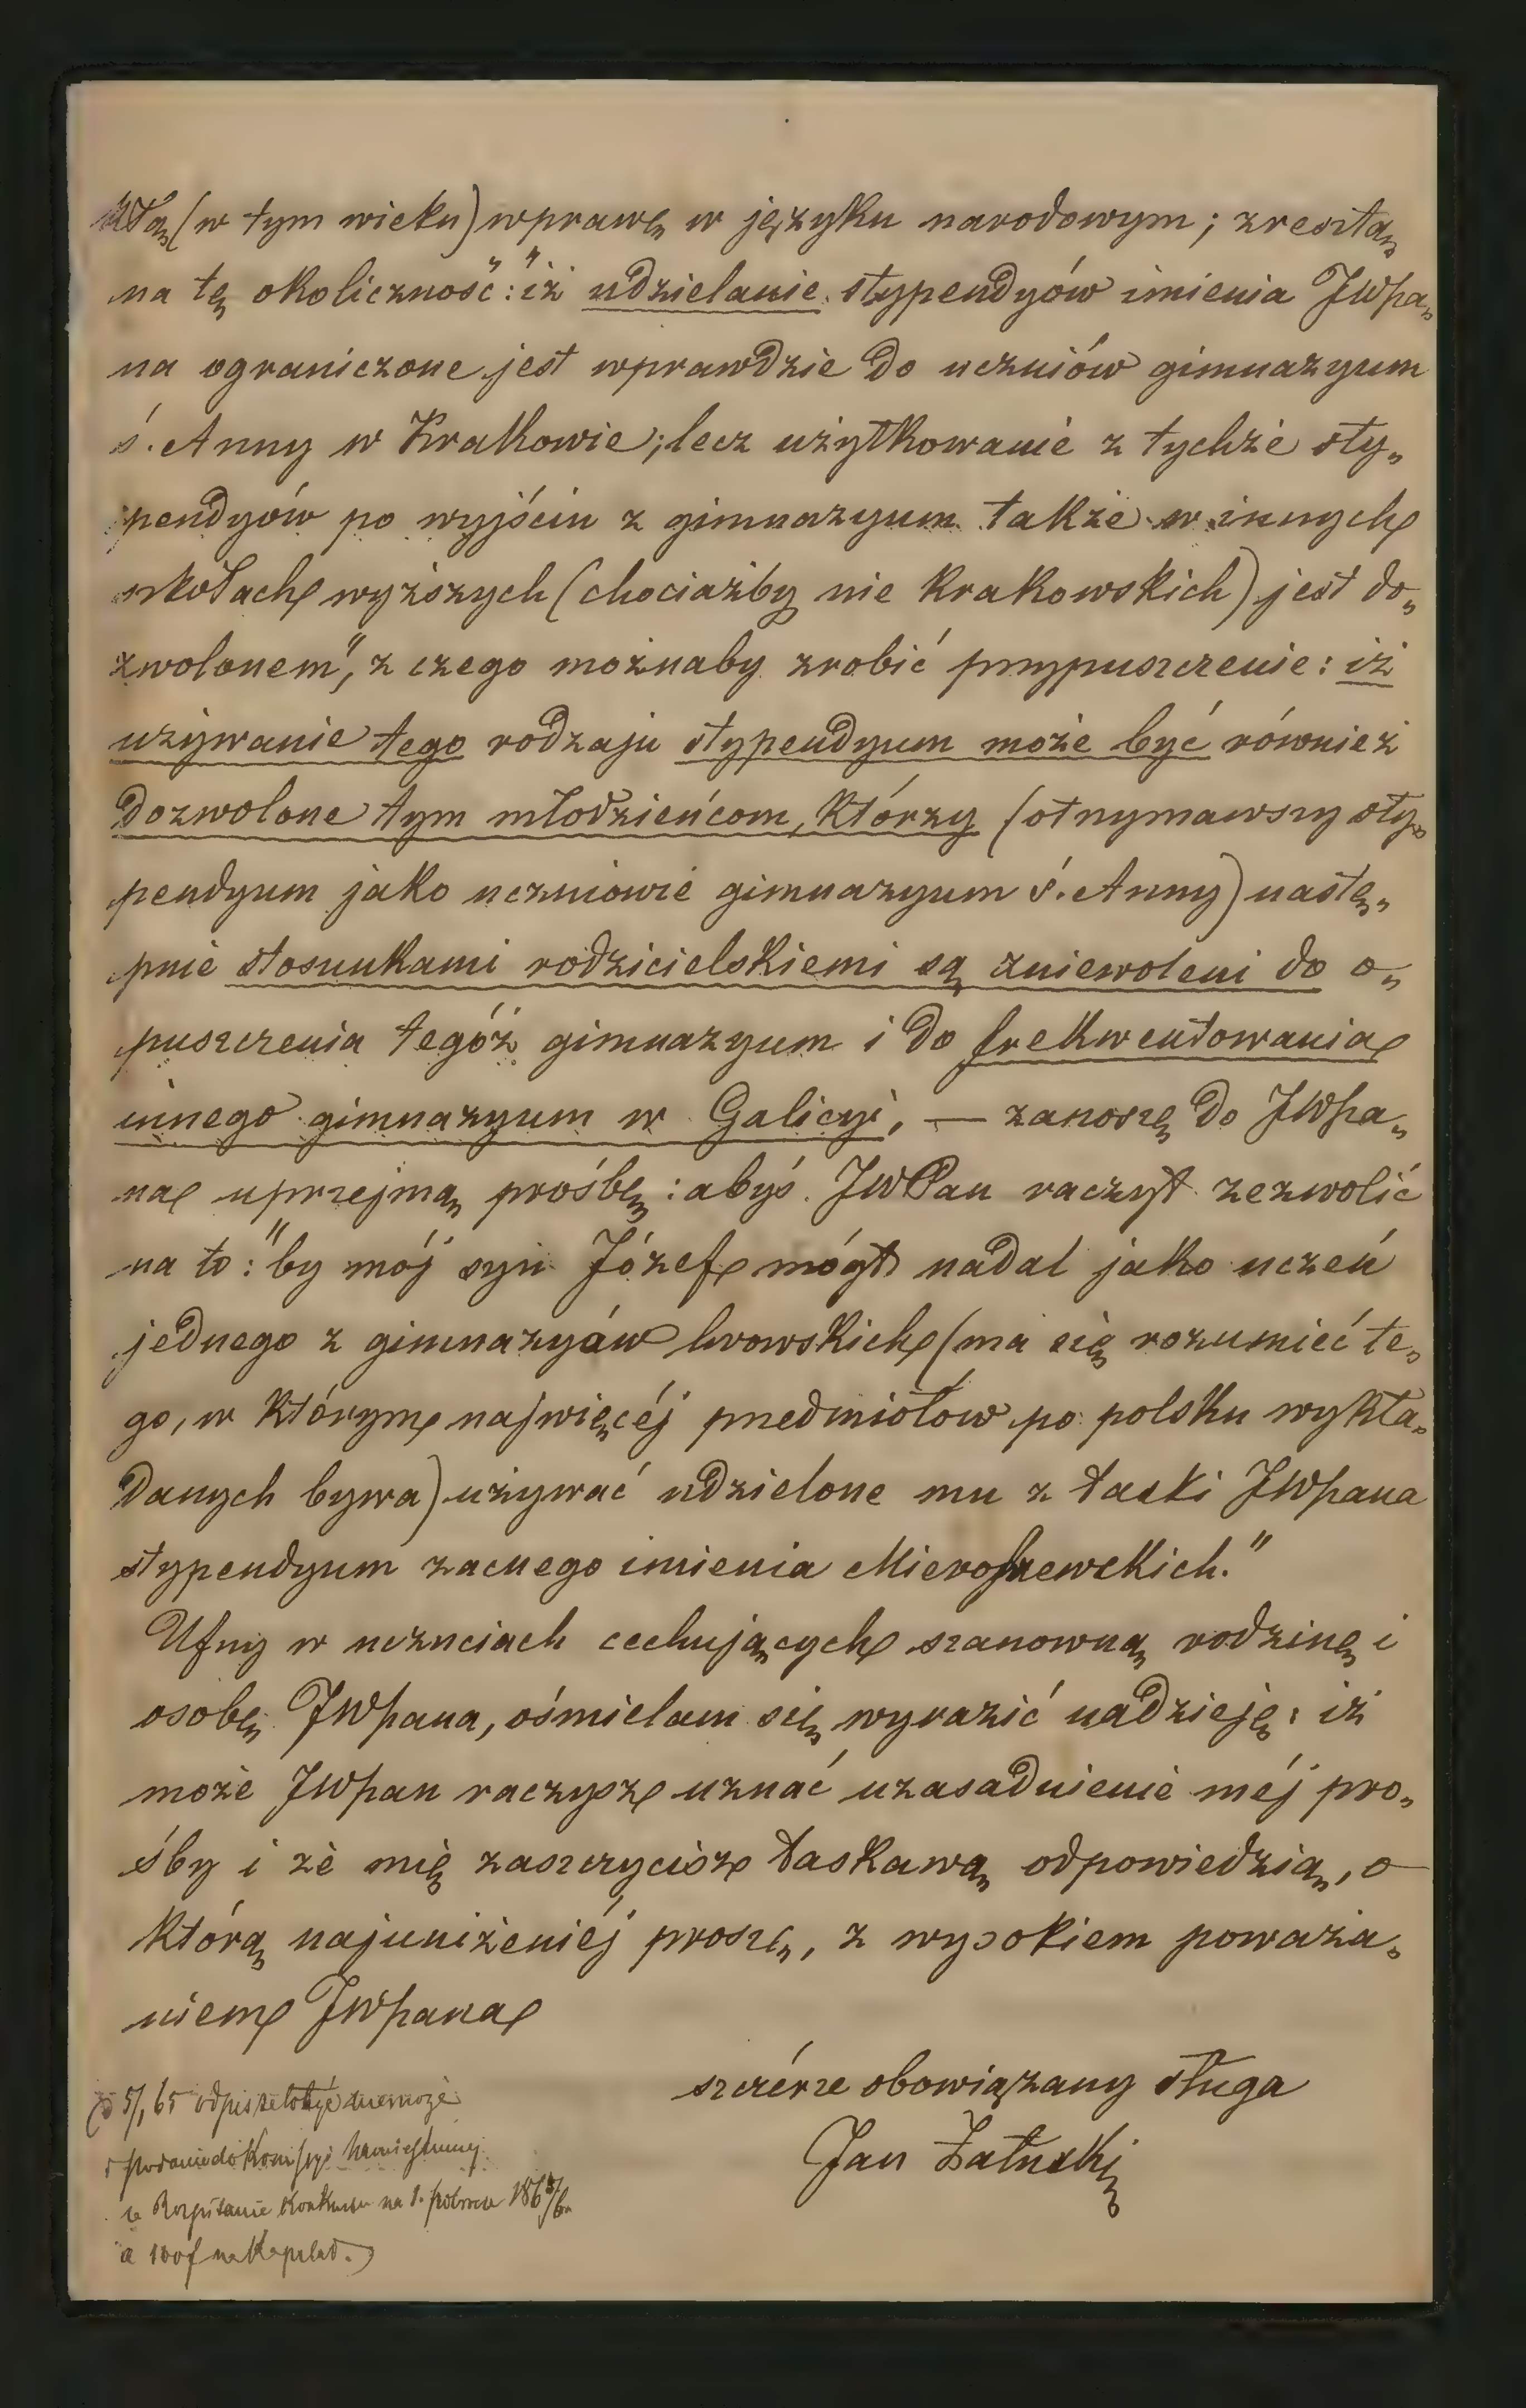 kłą (w tym wieku) wprawę w języku narodowym; zresztą
na tę okoliczność: "iż udzielanie stypendyów imienia JWPa„
na ograniczone jest wprawdzie do uczniów gimnazyum
ś. Anny w Krakowie; lecz użytkowanie z tychże sty„
pendyów po wyjściu z gimnazyum także w innych
szkołach wyższych (chociażby nie krakowskich) jest do„
zwolonem", z czego możnaby zrobić przypuszczenie: iż
używanie tego rodzaju stypendyum może być również
dozwolone tym młodzieńcom, którzy (otrzymawszy sty„
pendyum jako uczniowie gimnazyum ś. Anny) nastę„
pnie stosunkami rodzicielskiemi są zniewoleni do o„
puszczenia tegóż gimnazyum i do frekwentowania
innego gimnazyum w Galicyi, — zanoszę do JWPa„
na uprzejmą prośbę: abyś JWPan raczył zezwolić
na to: "by mój syn Józef mógł nadal jako uczeń
jednego z gimnazyów lwowskich (ma się rozumieć te„
go, w którym najwięcéj przedmiotów po polsku wykła„
danych bywa) używać udzielone mu z łaski JWPana
stypendyum zacnego imienia Mieroszewskich."
Ufny w uczuciach cechujących szanowną rodzinę i
osobę JWPana, ośmielam się wyrazić nadzieję: iż
może JWPan raczysz uznać uzasadnienie méj pro„
śby i że mię zaszczycisz łaskawą odpowiedzią, o
którą najuniżeniéj proszę, z wysokiem poważa„
niem JWPana
szczérze obowiązany sługa
Jan Załuski
5/1 65 być nie może
podanie do Komisyi
Rozpisanie Konkursu na 1. półrocze
a 100f na